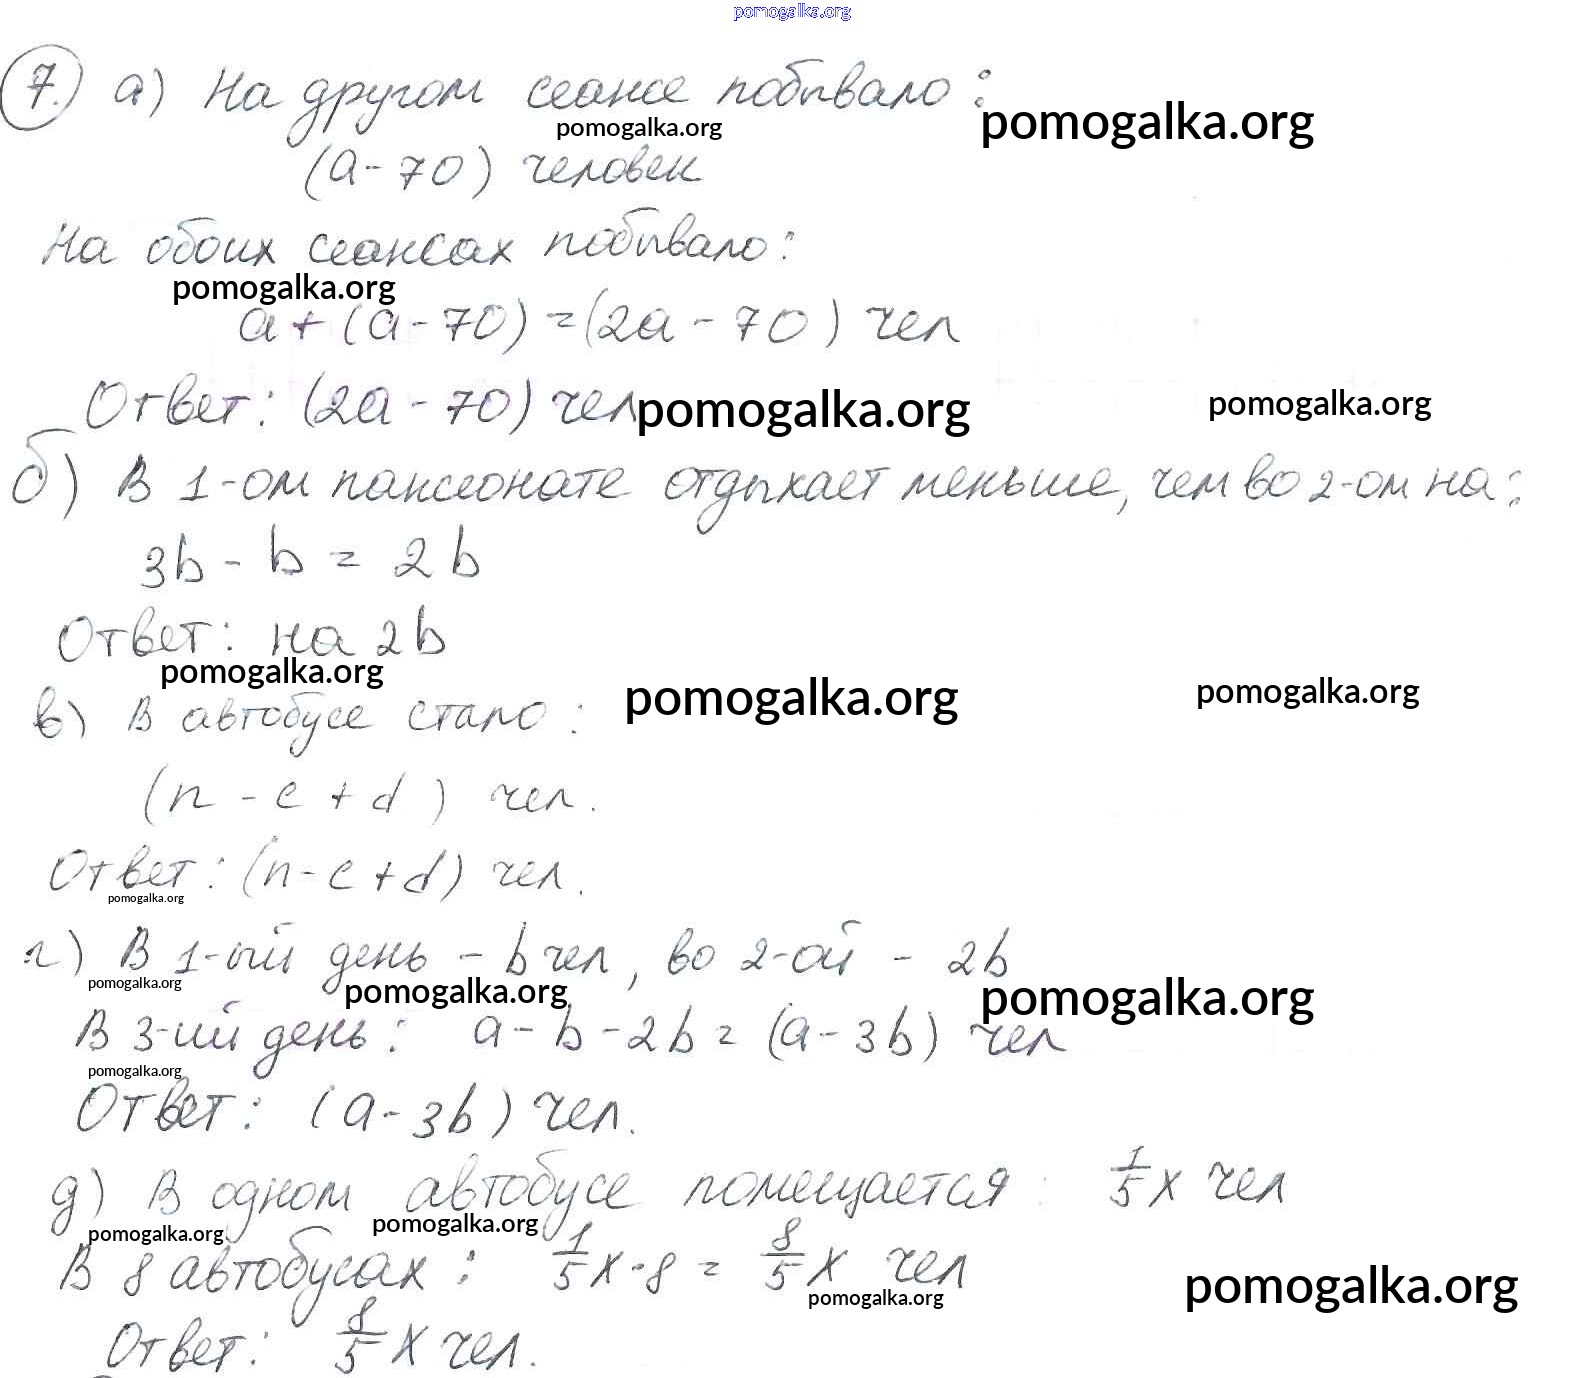 pomogalka.org
7. а) На другом сеансе побывало:
pomogalka.org pomogalka.org
(a - 70) человек
На обоих сеансах побывало:
pomogalka.org
a + (a - 70) = (2a - 70) чел
Ответ: (2a - 70) чел pomogalka.org pomogalka.org
б) В 1-ом пансионате отдыхает меньше, чем во 2-ом на:
3b - b = 2b
Ответ: на 2b
pomogalka.org pomogalka.org pomogalka.org
в) В автобусе стало:
(n - c + d) чел.
Ответ: (n - c + d) чел.
pomogalka.org
г) В 1-ый день - b чел, во 2-ой - 2b
pomogalka.org pomogalka.org pomogalka.org
В 3-ий день: a - b - 2b = (a - 3b) чел
pomogalka.org
Ответ: (a - 3b) чел.
д) В одном автобусе помещается: 1/5 x чел
pomogalka.org pomogalka.org
В 8 автобусах: 1/5 x · 8 = 8/5 x чел
pomogalka.org pomogalka.org
Ответ: 8/5 x чел.